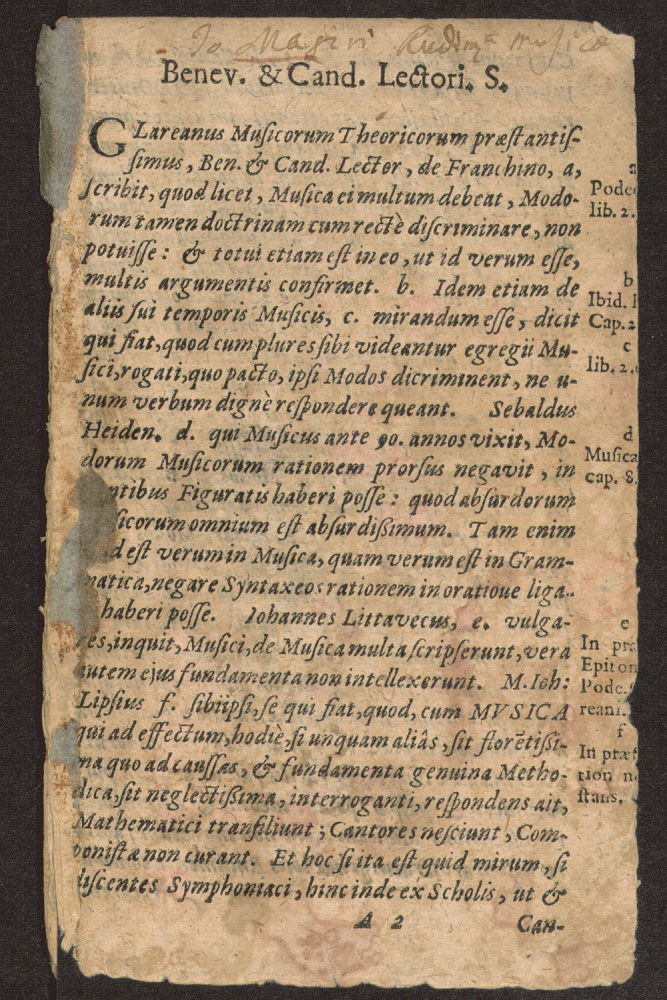 Jo Magiri Rudim musicæ
Benev. & Cand. Lectori. S.
GLareanus Muſicorum Theoricorum præſtantiſ-
ſimus, Ben. & Cand. Lector, de Franchino, a,
ſcribit, quod licet, Muſica ei multum debeat, Modo-
rum tamen doctrinam cum rectè diſcriminare, non
potuiſſe: & totus etiam eſt in eo, ut id verum eſſe,
multis argumentis confirmet. b. Idem etiam de
aliis ſui temporis Muſicis, c. mirandum eſſe, dicit
qui fiat, quod cum plures ſibi videantur egregii Mu-
ſici, rogati, quo pacto, ipſi Modos dicriminent, ne u-
num verbum dignè reſpondere queant. Sebaldus
Heiden. d. qui Muſicus ante 90. annos vixit, Mo-
dorum Muſicorum rationem prorſus negavit, in
ntibus Figuratis haberi poſſe: quod abſurdorum
ſicorum omnium eſt abſurdißimum. Tam enim
d eſt verum in Muſica, quam verum eſt in Gram-
matica, negare Syntaxeos rationem in oratioue liga-
haberi poſſe. Iohannes Littavecus, e. vulga-
es, inquit, Muſici, de Muſica multa ſcripſerunt, vera
autem ejus fundamenta non intellexerunt. M. Ioh:
Lipſius f. ſibi ipſi, ſe qui fiat, quod, cum MVSICA
qui ad effectum, hodiè, ſi unquam aliâs, ſit florētißi-
ma quo ad cauſſas, & fundamenta genuina Metho-
dica, ſit neglectißima, interroganti, reſpondens ait,
Mathematici tranſiliunt; Cantores neſciunt, Com-
poniſtæ non curant. Et hoc ſi ita eſt quid mirum, ſi
diſcentes Symphoniaci, hinc inde ex Scholis, ut &
A 2 Can-
a
Pode
lib. 2.
b
Ibid. l
Cap. 2
c
lib. 2.
d
Muſica
cap. 8.
e
In præ
Epiton
Pode.
reani.
f
In præf
tion n
ſtans.